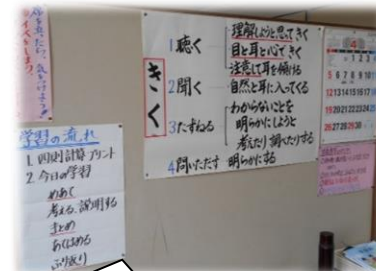 きく
1 聴く
理解しようと思ってきく
目と耳と心できく
注意して耳を傾ける
2 聞く
自然と耳に入ってくる
3 たずねる
わからないことを
明らかにしようと
考えたり調べたりする
4 問いただす 明らかにする
学習の流れ
1. 四則計算プリント
2. 今日の学習
めあて
考える、説明する
まとめ
あてはめる
ふり返り
4
5 6 7 8 9 10 11
12 13 14 15 16 17 18
19 20 21 22 23 24 25
26 27 28 29 30